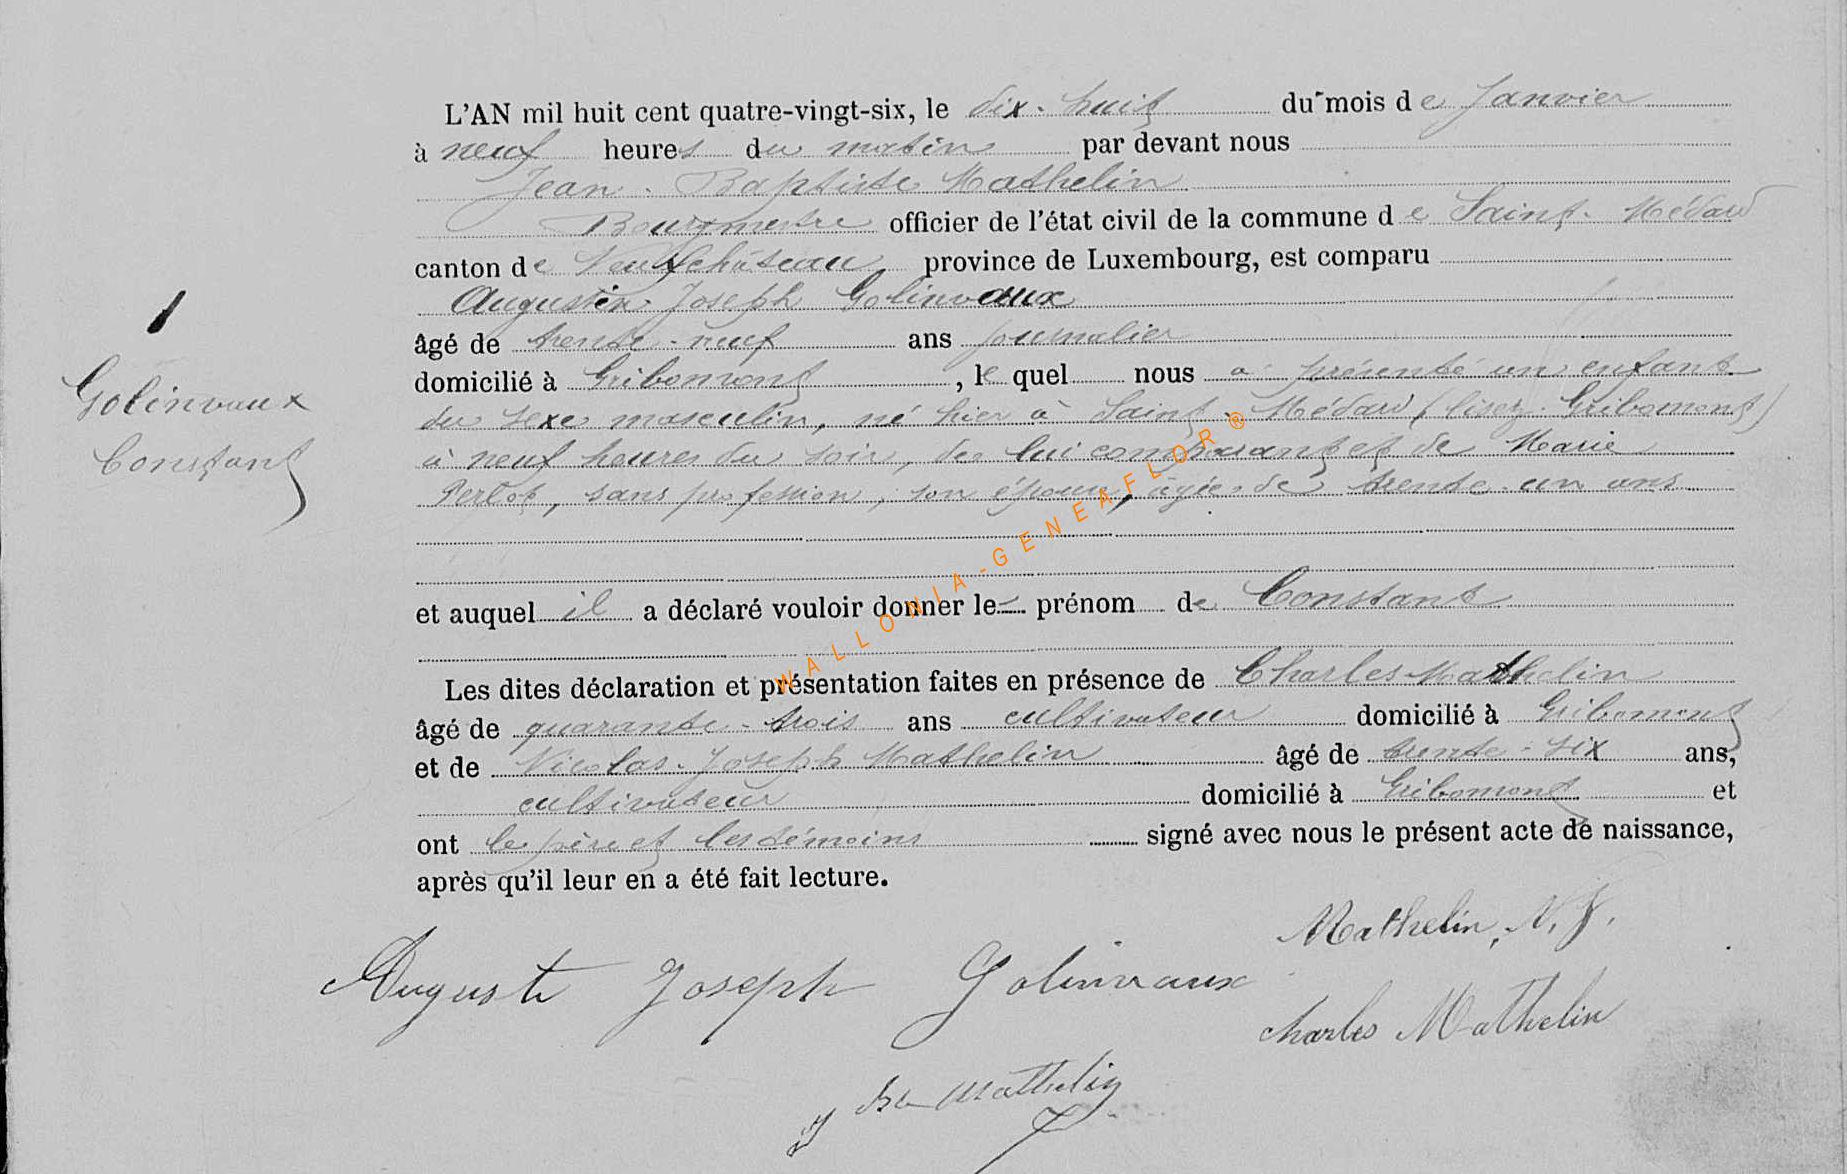 L'AN mil huit cent quatre-vingt-six, le dix-huit du mois de Janvier
à neuf heures du matin par devant nous
Jean-Baptiste Mathelin
Bourgmestre officier de l'état civil de la commune de Saint-Médard
canton de Neufchâteau, province de Luxembourg, est comparu
Augustin Joseph Golinvaux
1
âgé de trente-neuf ans journalier
domicilié à Gribomont, lequel nous a présenté un enfant
Golinvaux
du sexe masculin, né hier à Saint-Médard (lisez Gribomont)
Constant
à neuf heures du soir, de lui comparant et de Marie
Perlot, sans profession, son épouse, âgée de trente-un ans
et auquel il a déclaré vouloir donner le prénom de Constant
Les dites déclaration et présentation faites en présence de Charles Mathelin
âgé de quarante-trois ans cultivateur domicilié à Gribomont
et de Nicolas-Joseph Mathelin âgé de trente-six ans,
cultivateur domicilié à Gribomont et
ont le père et les témoins signé avec nous le présent acte de naissance,
après qu'il leur en a été fait lecture.
Mathelin, N. J.
Auguste Joseph Golinvaux
Charles Mathelin
Mathelin
WALLONIA-GENEAFLOR®